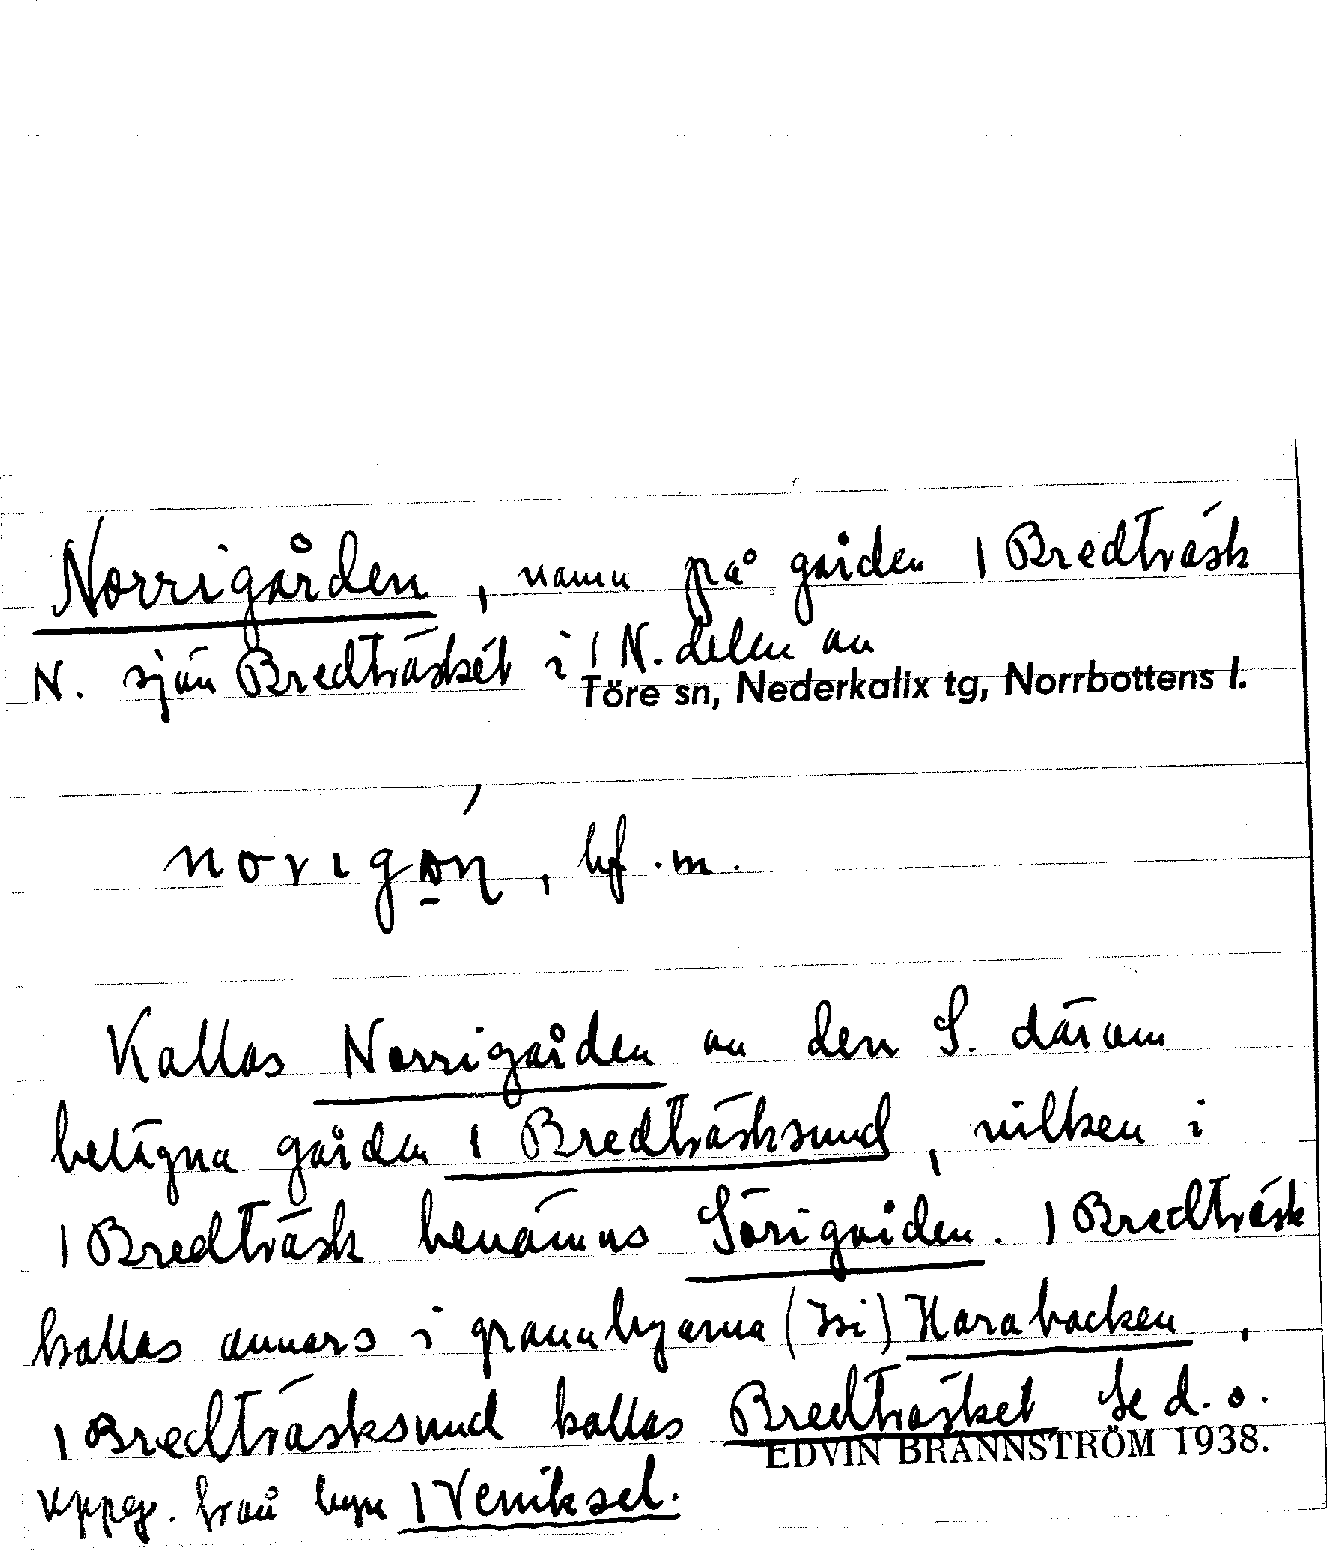 Norrigården, namn på gården 1 Bredträsk
N. sjön Bredträsket i 1 N. delen av
Töre sn, Nederkalix tg, Norrbottens l.
norıgɷ̱ņ, bf. m.
Kallas Norrigården av den S. därom
belägna gården 1 Bredträsksund, vilken i
1 Bredträsk benämns Sörigården. 1 Bredträsk
kallas annars i grannbyarna Harabacken,
1 Bredträsksund kallas Bredträsket Se d. o.
EDVIN BRÄNNSTRÖM 1938.
Uppg. från byn 1 Veniksel.